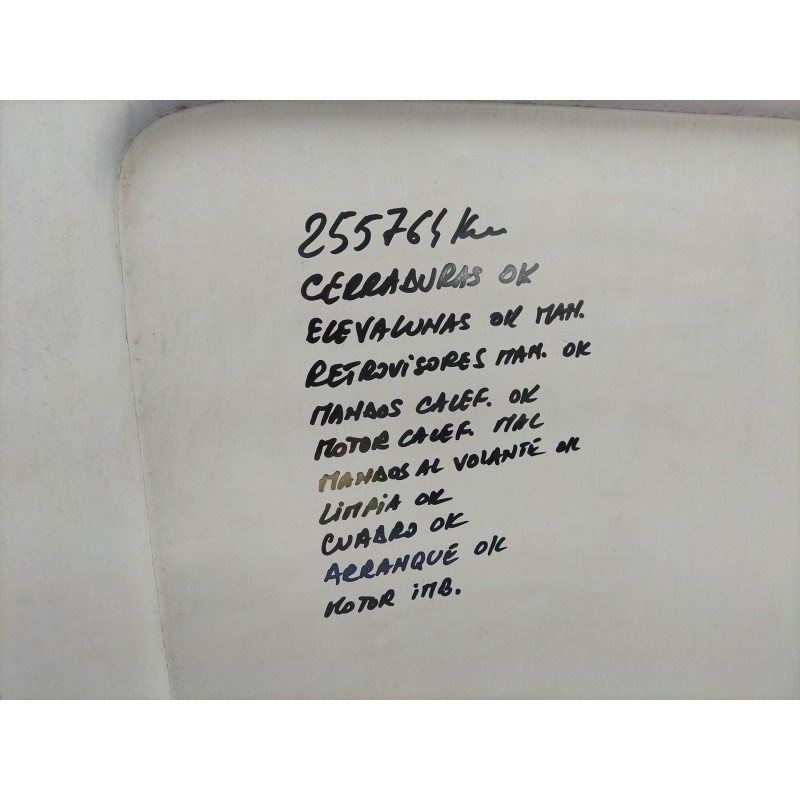 255764 Km
CERRADURAS OK
ELEVALUNAS OK MAN.
RETROVISORES MAN. OK
MANDOS CALEF. OK
MOTOR CALEF. MAL
MANDOS AL VOLANTE OK
LIMPIA OK
CUADRO OK
ARRANQUE OK
MOTOR IMB.